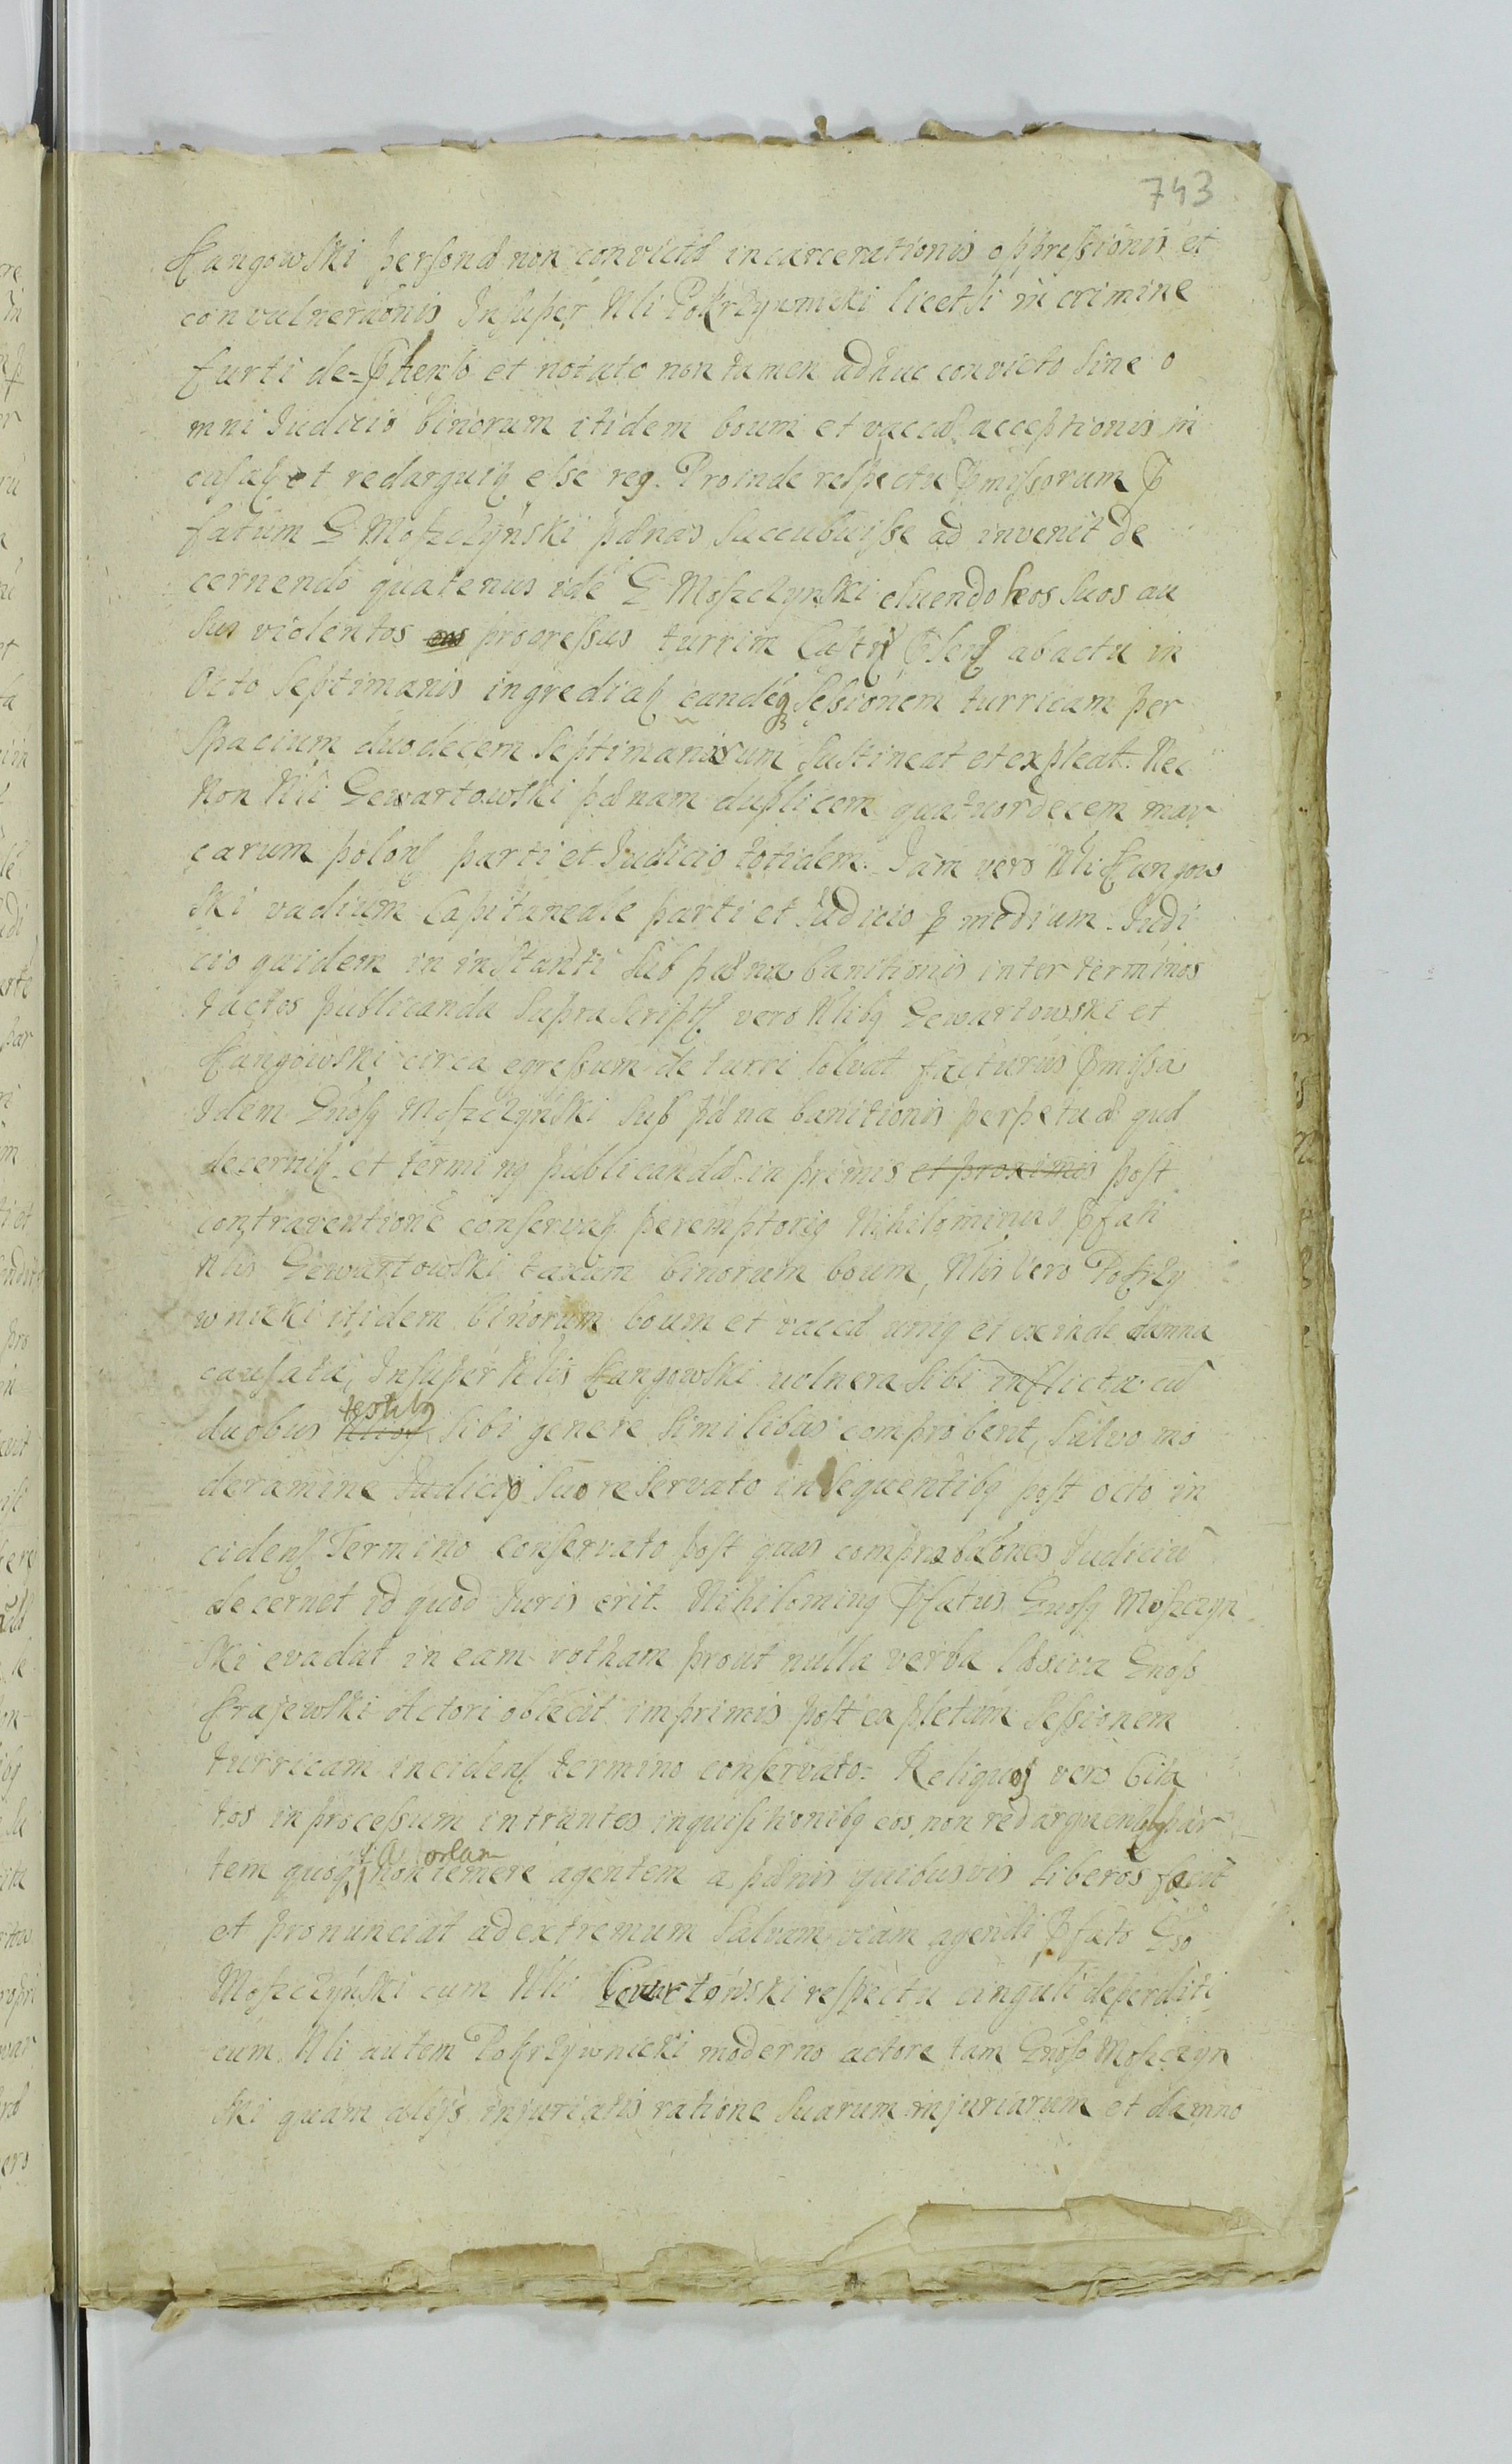 743
Kangowski personæ non convictæ incarcerationis oppressionis et
convulneraonis Insuper Nli Pokrzywnicki licet si in crimine
furti de-p̃henso et notato non tamen adhuc convicto sine o
mni Judicio binorum itidem boum et vaccæ acceptionis in
cusatq et redarguitq esse reg. Proinde respectu p̃missorum p̃
fatum G Moszczyński pœnas succubuisse ad invenit De
cernendo quatenus idē G Moszczynski eluendo hos suos au
sus violentos progressus turrim Castri p̃senq ab actu in
Octo septimanis ingrediatq eandēq sessionem turricam per
spacium duodecem septimanarum sustineat et expleat. Nec
Non Nli Gewartowski pœnam duplicem quatuordecem mar
carum polonq parti et Judicio totidem. Jam vero Nli Kangow
ski vadium Capitaneale parti et Judicio p medium. Judi
cio quidem in instanti sub pœna banitionis inter terminos
tactos publicanda supra scriptq vero Nlibq Gewartowski et
Kangowski circa egressum de turri solvat facturus p̃missa
Idem Gnosq Moszczyński sub pœna banitionis perpetuæ quæ
decernitq et terminq publicandæ in primis et proximis post
contraventionē conservatq peremptoriq Nihilominus p̃fati
Nlis Gewartowski taxam binorum boum, Nlis vero Pokrzy
wnicki itidem binorum boum et vaccæ uniq et exinde damna
causata, Insuper Nlis Kangowski vulnera sibi inflicta cū
duobus testibq sibi genere similibus comprobent, salvo mo
deramine Judicio suo reservato insequentibq post octo in
cidenq Termino conservato post quas comprobaones Judiciū
decernet id quod Juris erit. Nihilominq p̃fatus Gnosq Moszczyn
ski evadat in eam rotham prout nulla verba læsiva Gnoso
Krajewski Actori obiecit imprimis post expletam sessionem
turricam incidenq termino conservato. Reliquos vero cita
tos in processum intrantes inquisitionibq eos non redarguentibq par
tem quoq non temere agentem a pœnis quibusvis liberos facit
et pronunciat ad extremum salvam viam agendi p̃fato Gso
Moszczyński cum Nli Gewartowski respectu cinguli deperditi
cum Nli autem Pokrzywnicki moderno actore tam Gnoso Moszczyn
ski quam alijs injuriatis ratione suarum injuriarum et damno